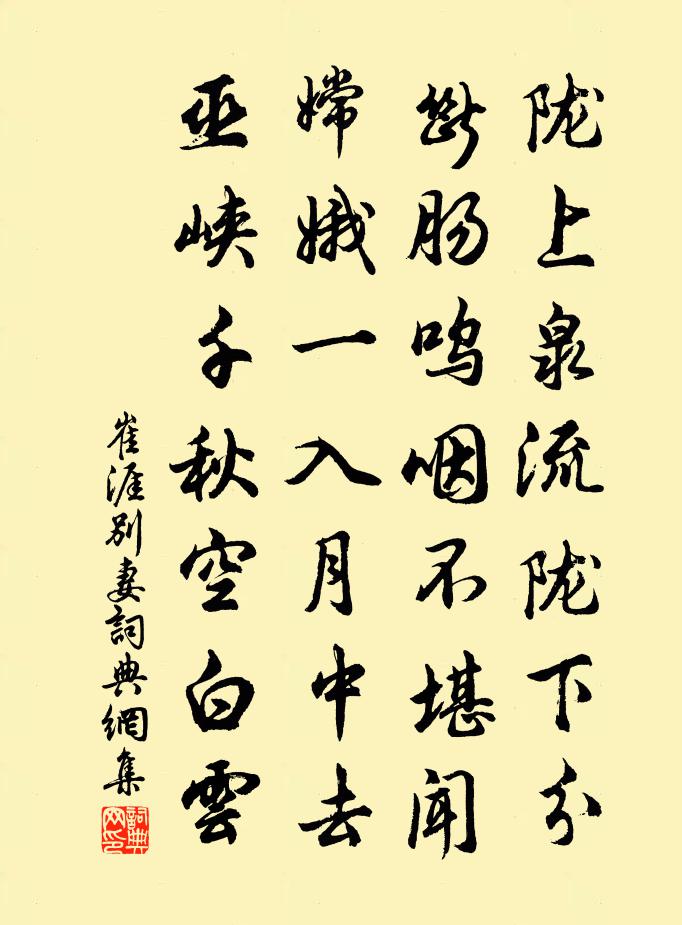 陇上泉流陇下分
断肠鸣咽不堪闻
嫦娥一入月中去
巫峡千秋空白雲
崔涯别妻詞典網集
詞典网印